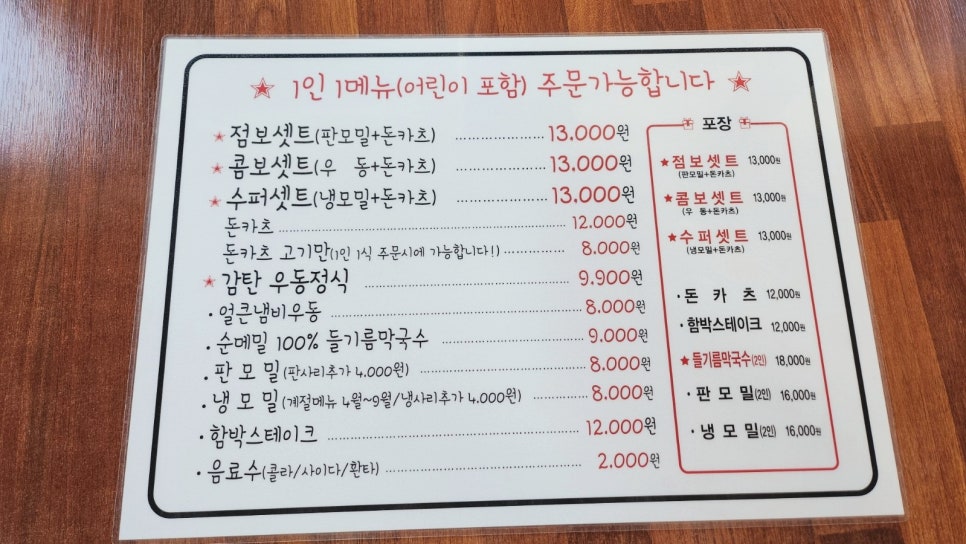 ★ 1인 1메뉴(어린이 포함) 주문가능합니다 ★
★ 점보셋트(판모밀+돈카츠) 13.000원
★ 콤보셋트(우 동+돈카츠) 13.000원
★ 수퍼셋트(냉모밀+돈카츠) 13.000원
돈카츠 12.000원
돈카츠 고기만(1인 1식 주문시에 가능합니다!) 8.000원
★ 감탄 우동정식 9.900원
· 얼큰냄비우동 8.000원
· 순메밀 100% 들기름막국수 9.000원
· 판 모 밀(판사리추가 4.000원) 8.000원
· 냉 모 밀(계절메뉴 4월~9월/냉사리추가 4.000원) 8.000원
· 함박스테이크 12.000원
· 음료수(콜라/사이다/환타) 2.000원
포장
★ 점보셋트 13,000원
(판모밀+돈카츠)
★ 콤보셋트 13,000원
(우 동+돈카츠)
★ 수퍼셋트 13,000원
(냉모밀+돈카츠)
· 돈 카 츠 12,000원
· 함박스테이크 12,000원
★ 들기름막국수(2인) 18,000원
· 판 모 밀(2인) 16,000원
· 냉 모 밀(2인) 16,000원